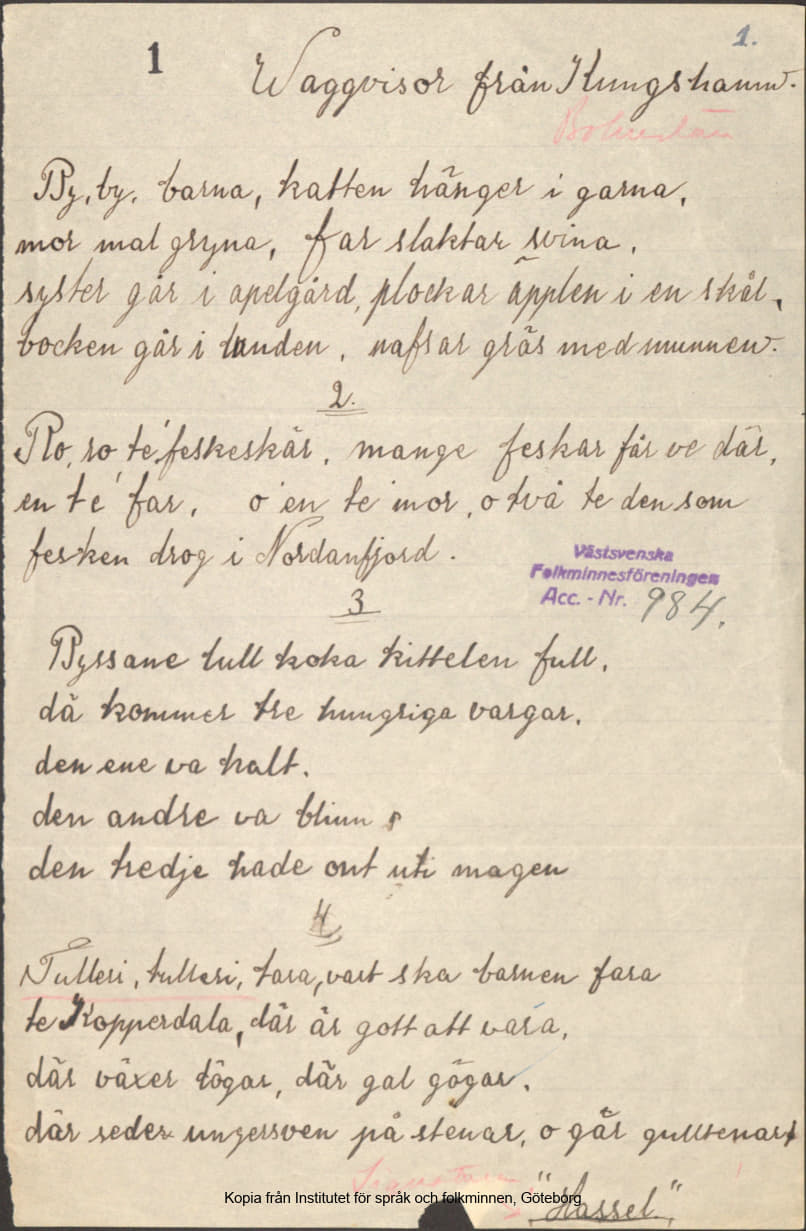 1
1.
Waggvisor från Kungshamn.
Bohuslän
By, by, barna, katten hänger i garna,
mor mal gryna, far slaktar svina,
syster går i apelgård, plockar äpplen i en skål,
bocken går i lunden, nafsar gräs med munnen.
2.
Ro, ro, te' feskeskär, mange feskar får ve där,
en te' far, o en te mor, o två te den som
fesken drog i Nordanfjord.
Västsvenska
Folkminnesföreningen
Acc. - Nr. 984.
3
Byssane lull koka kittelen full,
då kommer tre hungriga vargar,
den ene va halt,
den andre va blinn
den tredje hade ont uti magen
4
Tulleri, tulleri, tara, vart ska barnen fara
te Kopperdala, där är gott att vara,
där växer lögar, där gal gögar,
där seder ungersven på stenar, o går gulltenar
Kopia från Institutet för språk och folkminnen, Göteborg
"Hassel"